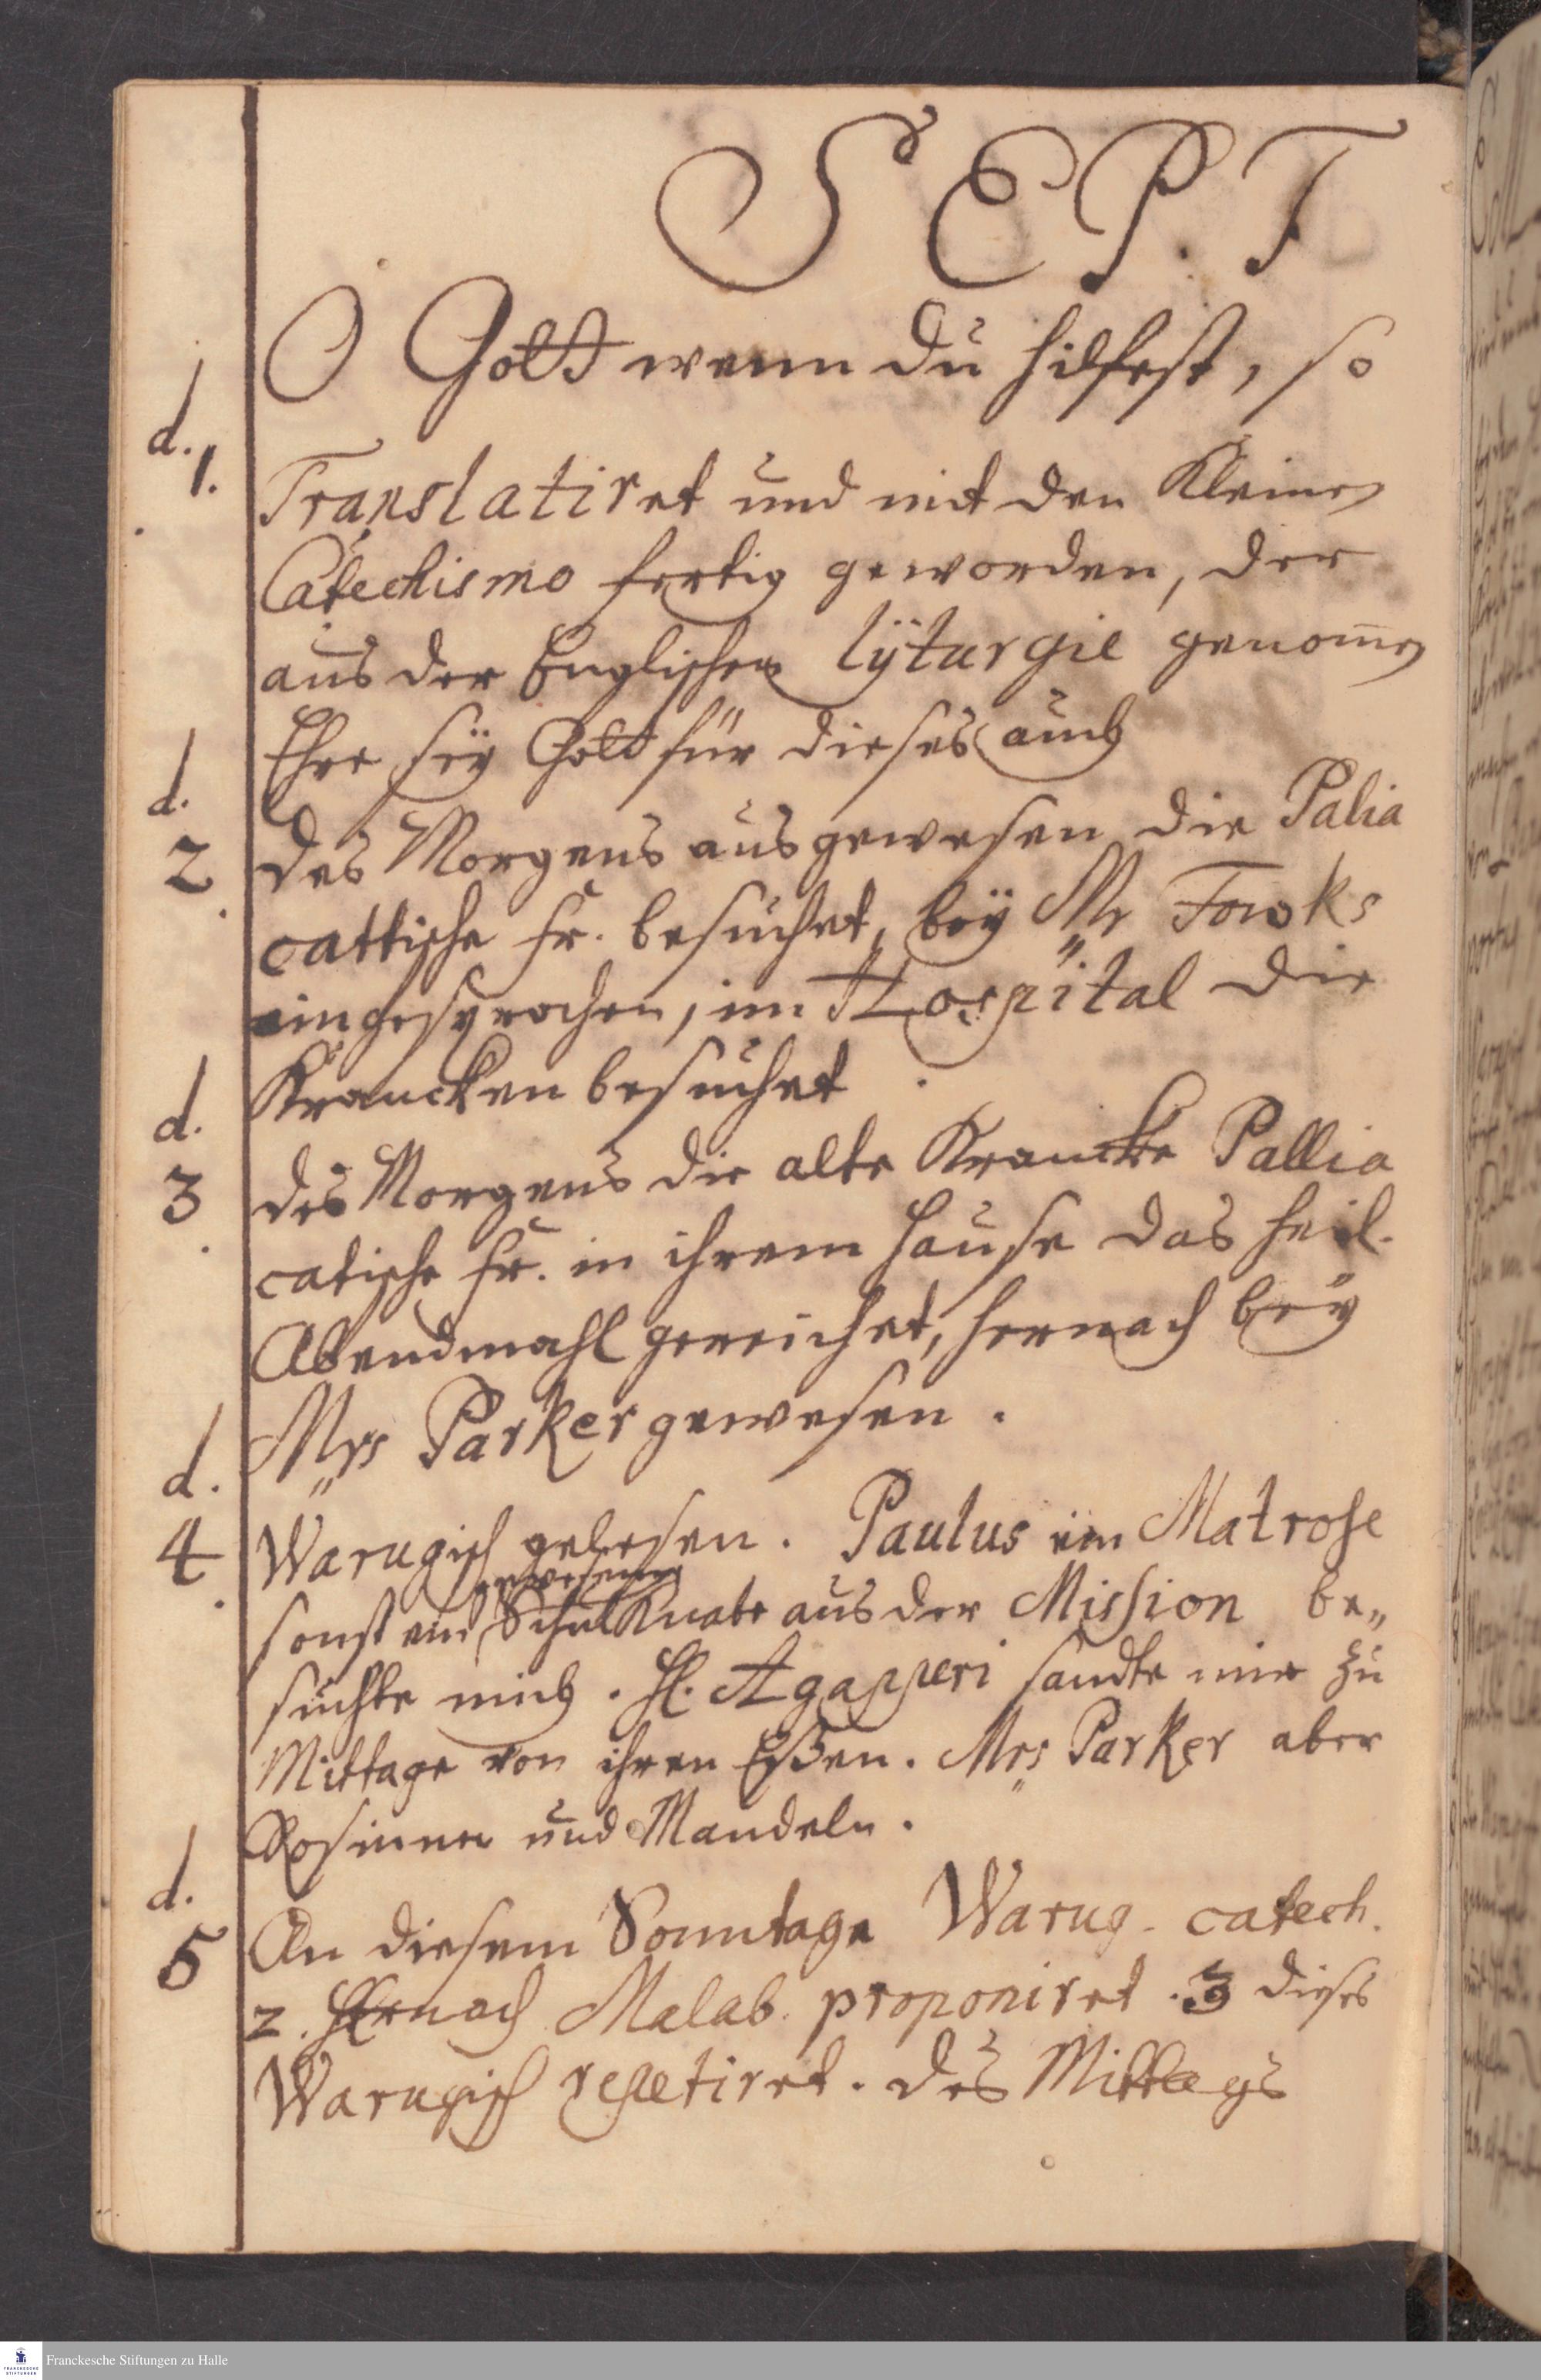 SEP.T
O Gott wenn du hilfest, so
d. 1. Translatiret und mit den Kleinen
Catechismo fertig geworden, der
aus der Englischen lÿturgie genom̄en
Ehre seÿ Gott für dieses auch
d. 2. des Morgens ausgewesen die Palia
cattische Fr. besuchet, beÿ Mr Fowks
eingesprochen, im Hospital die
Krancken besuchet.
d. 3. des Morgens die alte Krancke Pallia
catische Fr. in ihrem Hause das heil.
Abendmahl gereichet, hernach beÿ
Mrs Parker gewesen.
d. 4. Warugisch gelesen. Paulus ein Matrose
gewesener
sonst ein SchulKnabe aus der Mission be„
suchte mich. H. Agapperi sandte mir zu
Mittage von ihren Eßen. Mrs Parker aber
Rosinnen und Mandeln.
d. 5 An diesem Sonntage Warug. catech.
2. Hernach Malab. proponiret. 3 dieses
Warugisch repetiret. des Mittags
Franckesche Stiftungen zu Halle
FRANCKESCHE
STIFTUNGEN